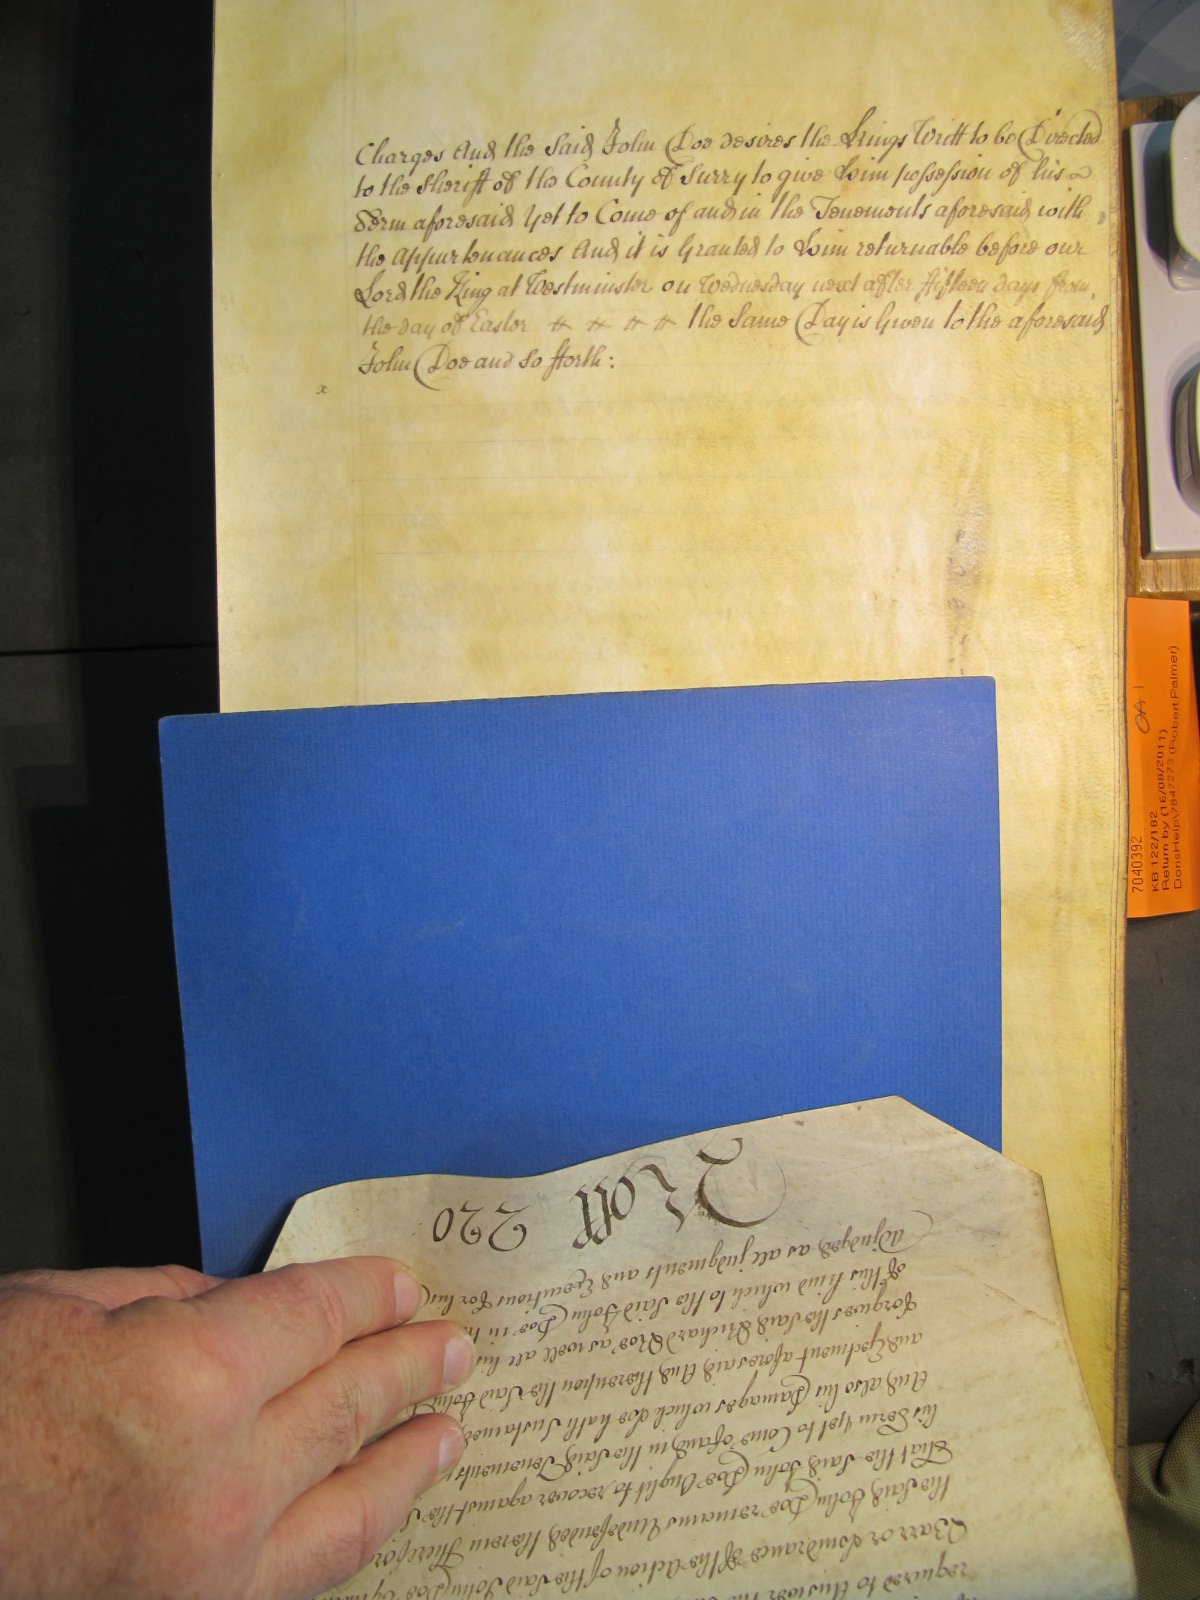 Charges And the Said John Doe desires the Kings Writt to be Directed
to the Sheriff of the County of Surry to give him possession of his
Term aforesaid yet to Come of and in the Tenements aforesaid with
the Appurtenances And it is Granted to him returnable before our
Lord the King at Westminster on Wednesday next after fifteen days from
the day of Easter # # # # the Same Day is Given to the aforesaid
John Doe and so fforth:
x
7040392
KB 122/182
Return by (16/08/2011)
DorisHelp\7847273 (Robert Palmer)
OA 1
Roll 220
Adjudged as all judgments and Executions for his
of this kind which to the Said John Doe in
forgives the Said Richard Roe as well all his
and Ejectment aforesaid And thereupon the Said John
And also his Damages which doe hath Sustained
his Term yet to Come of and in the Said Tenements
that the Said John Doe Ought to recover against the
the Said John Doe remains Undefended therein Therefor
Barr or hindrance of the Action of the Said John Doe
required to this